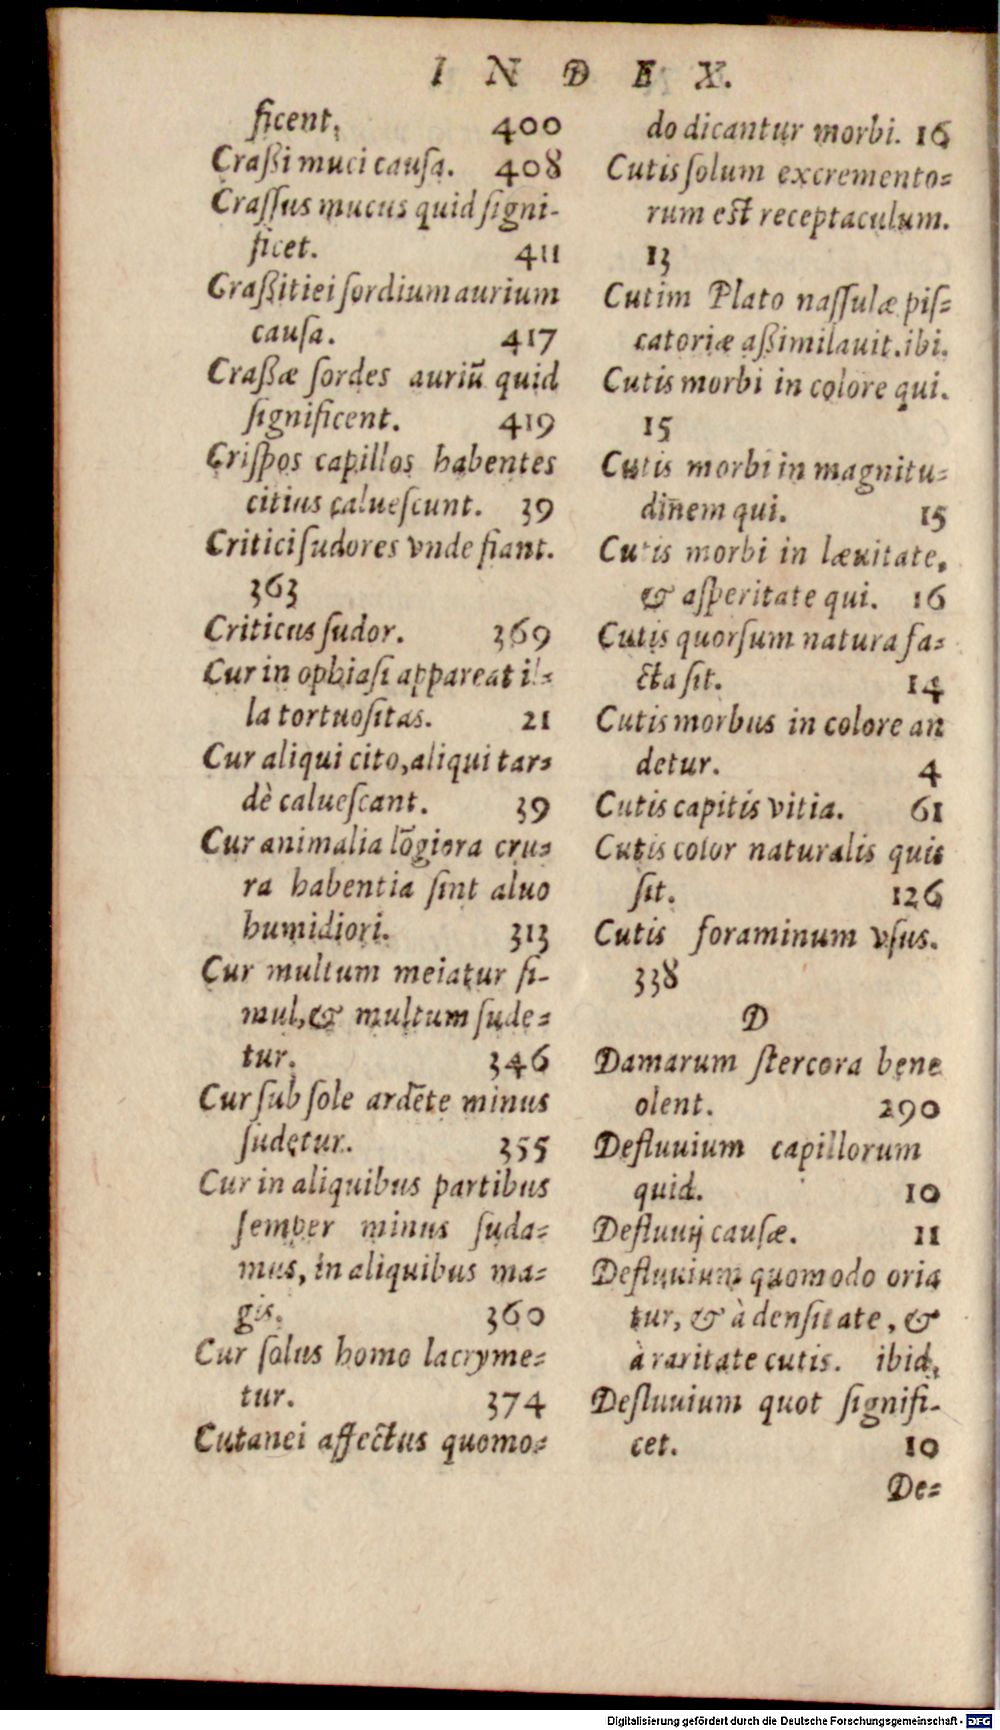 INDEX.
ficent. 400
Craßi muci cauſa. 408
Craſſus mucus quid ſigni-
ficet. 411
Graßitiei ſordium aurium
cauſa. 417
Craßæ ſordes auriū quid
ſignificent. 419
Criſpos capillos habentes
citius calueſcunt. 39
Critici ſudores vnde fiant.
363
Criticus ſudor. 369
Cur in ophiaſi appareat il=
la tortuoſitas. 21
Cur aliqui cito, aliqui tar=
dè calueſcant. 39
Cur animalia lōgiora cru=
ra habentia ſint aluo
humidiori. 313
Cur multum meiatur ſi-
mul, & multum ſude=
tur. 346
Cur ſub ſole ardēte minus
ſudetur. 355
Cur in aliquibus partibus
ſemper minus ſuda=
mus, in aliquibus ma=
gis. 360
Cur ſolus homo lacryme=
tur. 374
Cutanei affectus quomo=
do dicantur morbi. 16
Cutis ſolum excremento=
rum est receptaculum.
13
Cutim Plato naſſulæ piſ=
catoriæ aßimilauit. ibi.
Cutis morbi in colore qui.
15
Cutis morbi in magnitu=
dinem qui. 15
Cutis morbi in læuitate,
& aſperitate qui. 16
Cutis quorſum natura fa=
cta ſit. 14
Cutis morbus in colore an
detur. 4
Cutis capitis vitia. 61
Cutis color naturalis quis
ſit. 126
Cutis foraminum vſus.
338
D
Damarum ſtercora bene
olent. 290
Defluuium capillorum
quid. 10
Defluuij cauſæ. 11
Defluuium quomodo oria
tur, & à denſitate, &
à raritate cutis. ibid.
Defluuium quot ſignifi-
cet. 10
De=
Digitalisierung gefördert durch die Deutsche Forschungsgemeinschaft - DFG